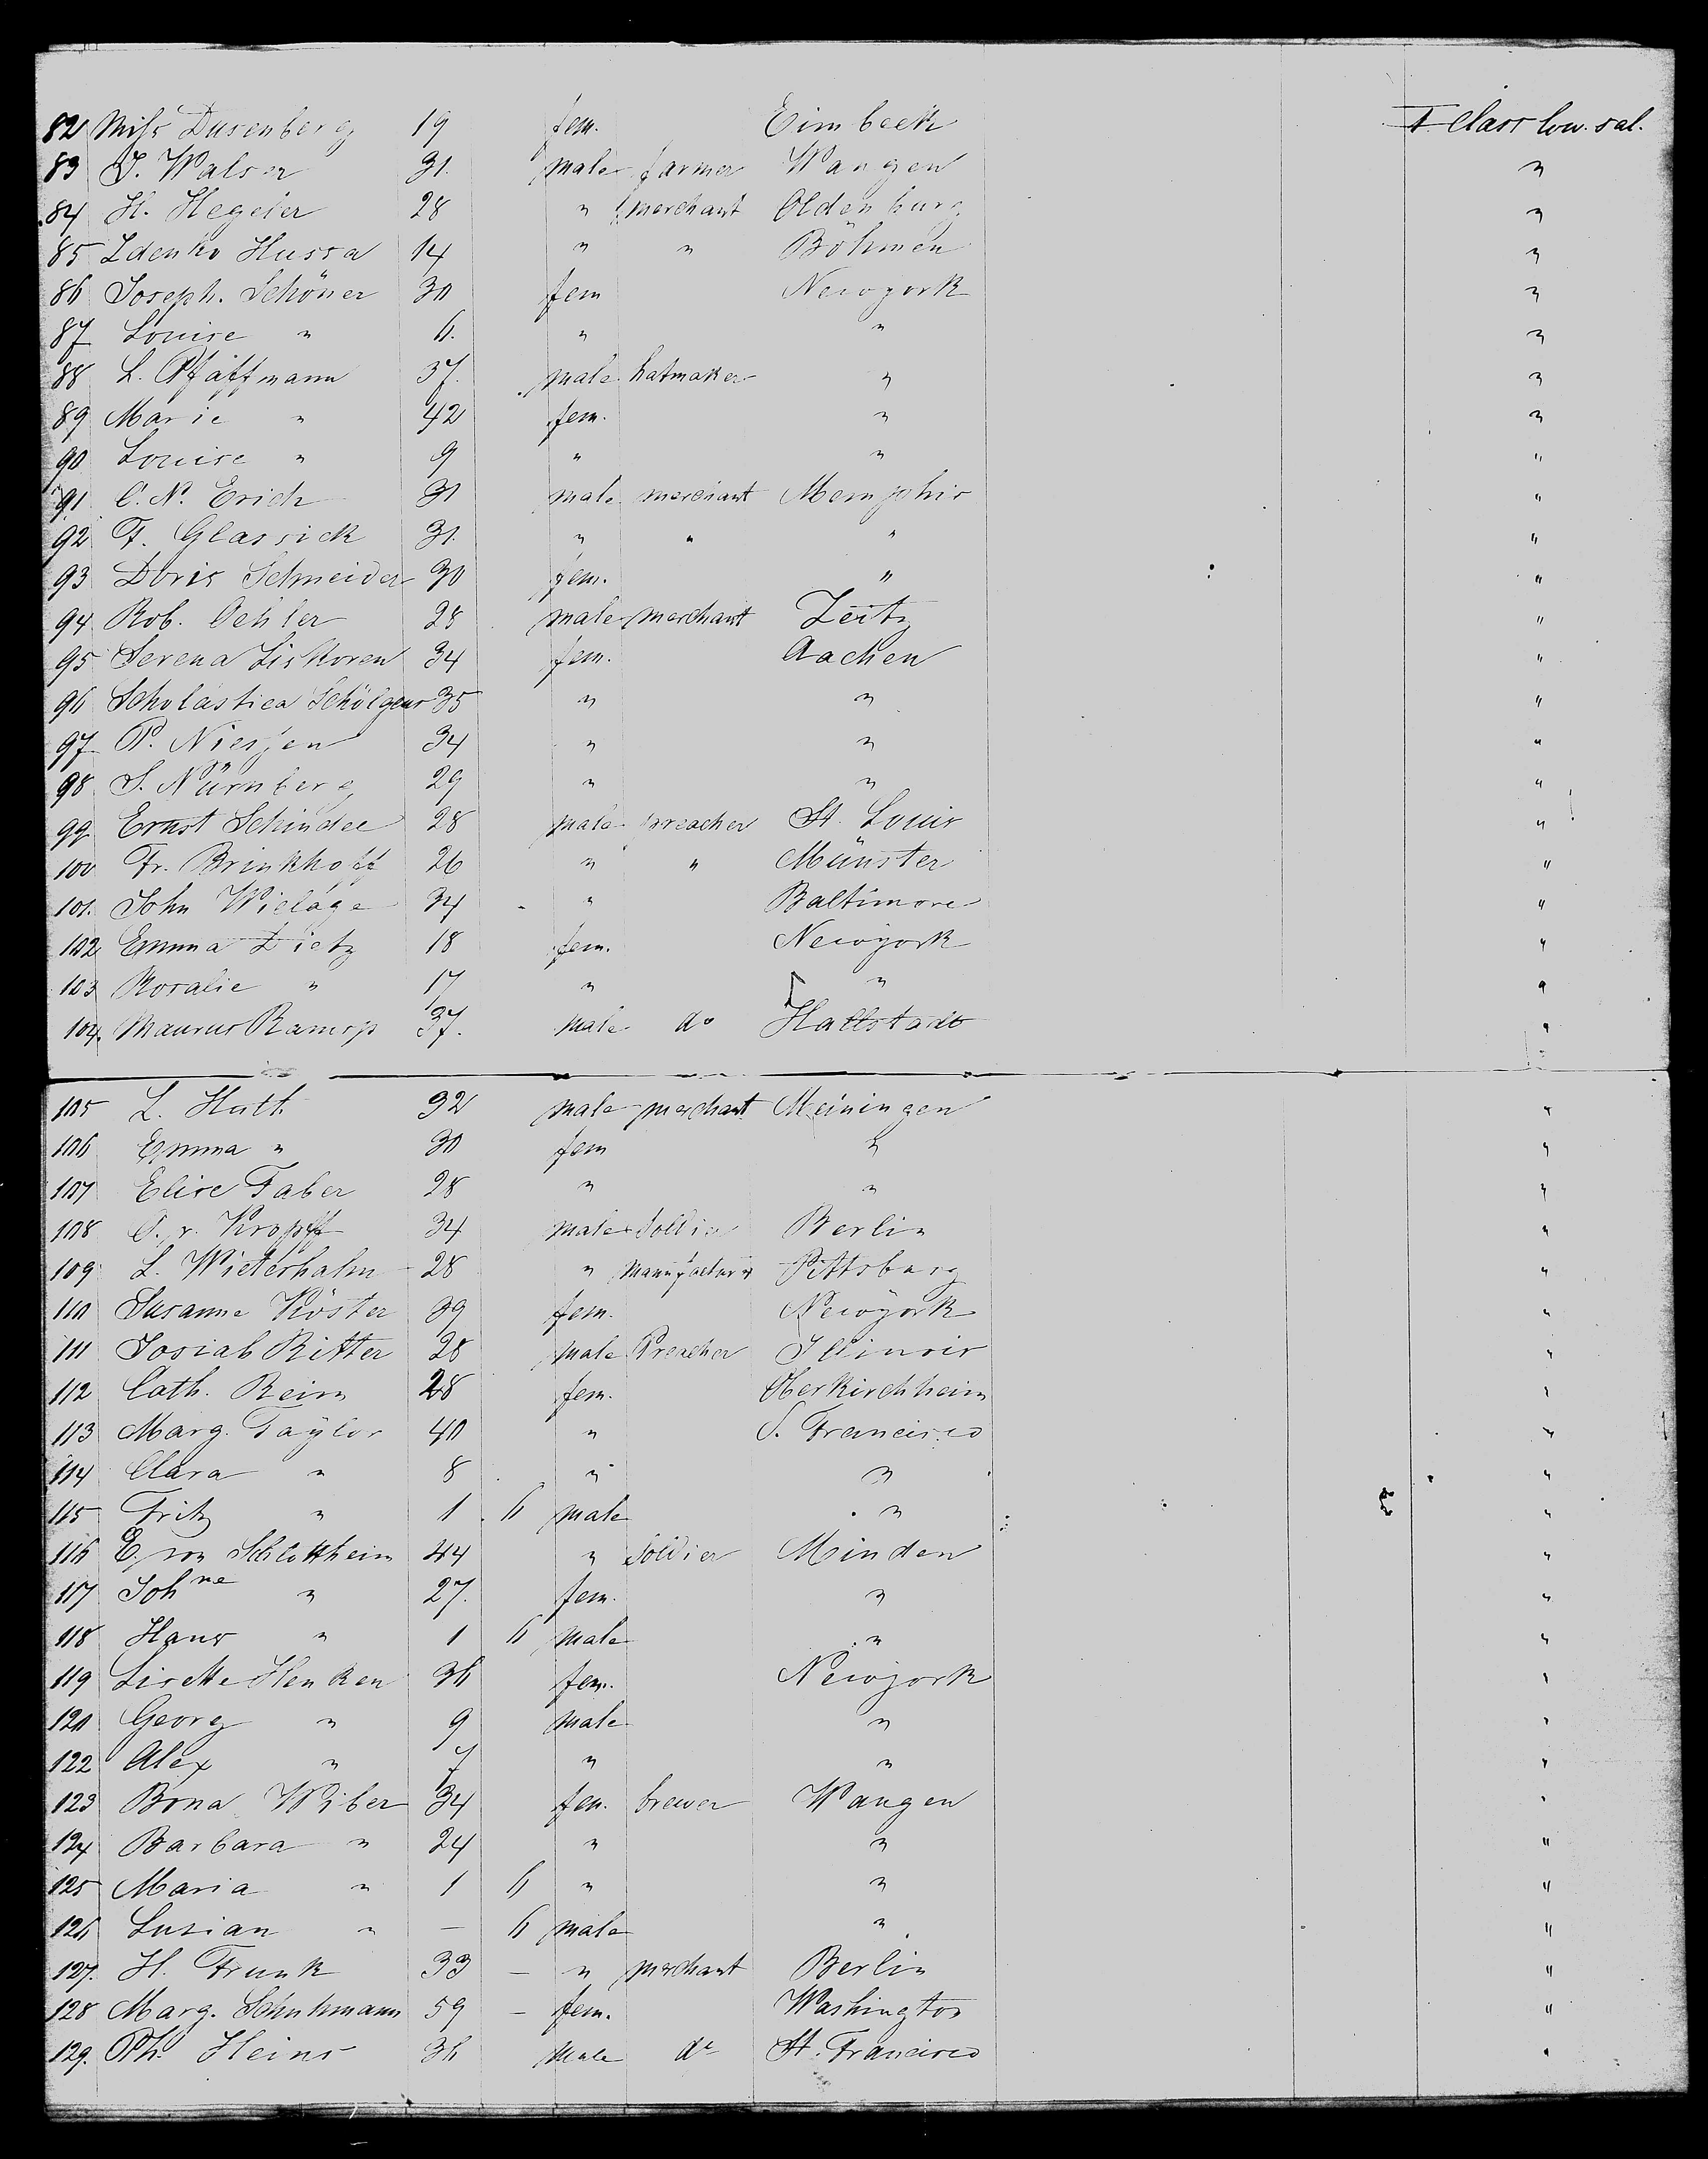 82 Miss Dusenberg 19 fem. Eimbeck I Class low. sal.
83 J. Walser 31. male farmer Wangen "
84 H. Hegeler 28 " merchant Oldenburg "
85 Zdenko Hussa 14 " " Böhmen "
86 Joseph. Schöner 30 fem Newyork "
87 Louise " 6. " " "
88 L. Pfaffmann 37. male hatmaker " "
89 Marie " 42 fem. " "
90 Louise " 9 " " "
91 C. N. Erich 31 male merchant Memphis "
92 F. Glassick 31. " " " "
93 Doris Schneider 30 fem. " "
94 Rob. Oehler 28 male merchant Zeitz "
95 Serena Liskoren 34 fem. Aachen "
96 Scholastica Schölgens 35 " " "
97 P. Niesjen 34 " " "
98 S. Nürnberg 29 " " "
99 Ernst Schindel 28 male preacher St. Louis "
100 Fr. Brinkhoff 26 " " Münster "
101. John Wielage 34 " Baltimore "
102 Emma Dietz 18 fem. Newyork "
103 Rosalie " 17 " " "
104. Maurus Ramsp 37. male do Hallstadt "
105 L. Huth 32 male merchant Meiningen "
106 Emma " 30 fem " "
107 Elise Faber 28 " " "
108 O. v. Kropff 34 male Soldier Berlin "
109 L. Wieterhalm 28 " Manufacturer Pittsburg "
110 Susanne Köster 39 fem. Newyork "
111 Josiah Ritter 28 male Preacher Illinois "
112 Cath. Reim 28 fem. Oberkirchheim "
113 Marg. Taylor 40 " S. Francisco "
114 Clara " 8 " " "
115 Fritz " 1 6 male " "
116 E. von Schlottheim 44 " Soldier Minden "
117 Johne " 27. fem. " "
118 Hans " 1 6 male " "
119 Lisette Henken 36 fem. Newyork "
120 Georg " 9 male " "
122 Alex " 7 " " "
123 Bona Wiber 34 fem. brewer Wangen "
124 Barbara " 24 " " "
125 Maria " 1 6 " " "
126 Lusian " — 6 male " "
127. H. Frunk 33 — " merchant Berlin "
128 Marg. Schuhmann 59 — fem. Washington "
129. Ph. Heins 36 Male do St. Francisco "